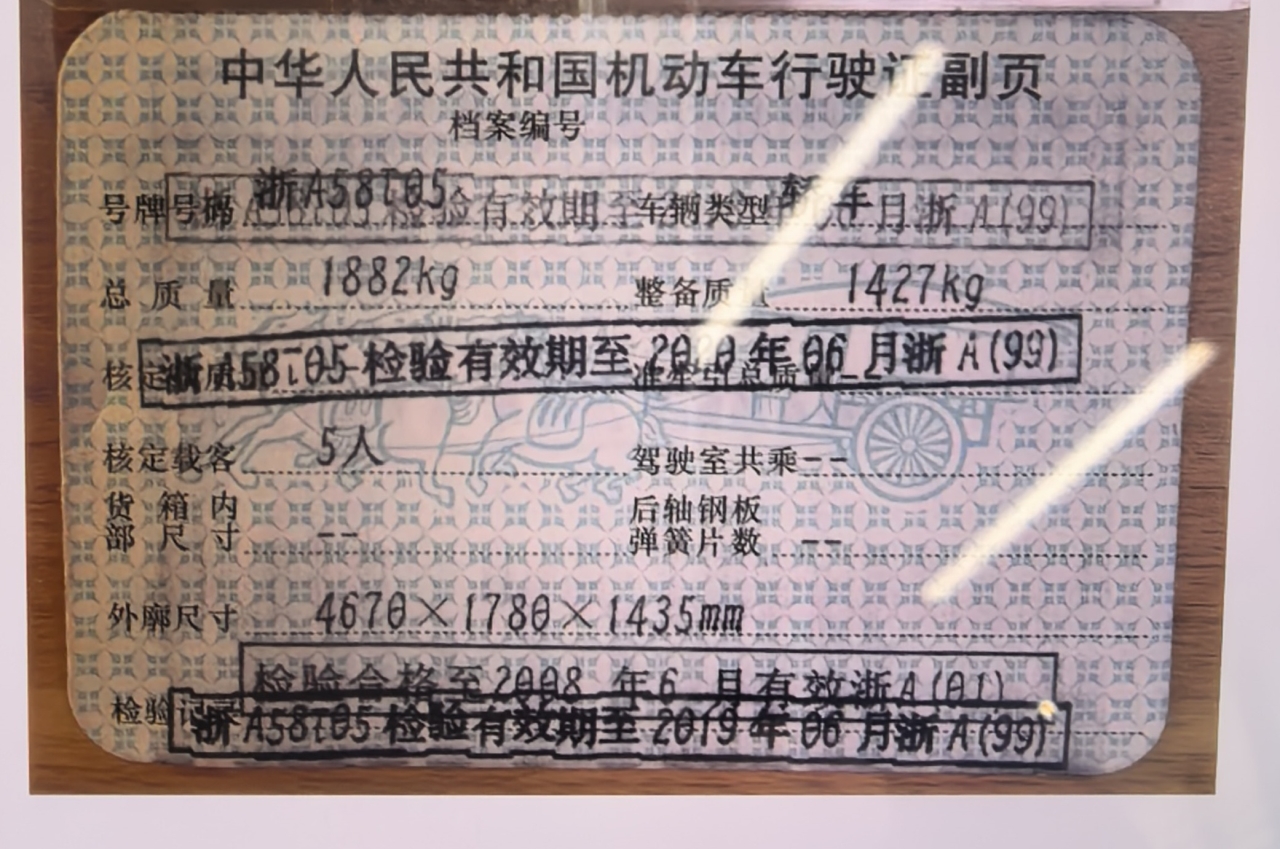 中华人民共和国机动车行驶证副页
档案编号
号牌号码 浙A58T05 车辆类型
检验有效期至 月浙A(99)
总质量 1882kg 整备质量 1427kg
浙A58T05检验有效期至2020年06月浙A(99)
核定 准牵引总质量--
核定载客 5人 驾驶室共乘--
货箱内 后轴钢板
部尺寸 -- 弹簧片数 --
外廓尺寸 4670×1780×1435mm
检验合格至2008年6月有效浙A(01)
检验记录
浙A58T05检验有效期至2019年06月浙A(99)